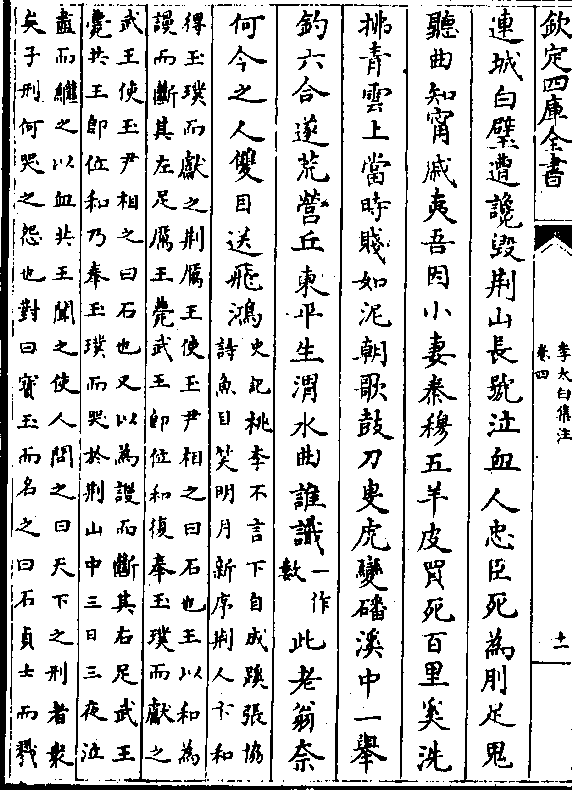 欽定四庫全書
李太白集注
卷四
十一
連城白璧遭讒毀荆山長號泣血人忠臣死為刖足鬼
聽曲知甯戚夷吾因小妻秦穆五羊皮買死百里奚洗
拂青雲上當時賤如泥朝歌鼓刀叟虎變磻溪中一舉
釣六合遂荒營丘東平生渭水曲誰識一作數此老翁奈
何今之人雙目送飛鴻史記桃李不言下自成蹊張協
詩魚目笑明月新序荆人卞和
得玉璞而獻之荆厲王使玉尹相之曰石也王以和為
謾而斷其左足厲王薨武王即位和復奉玉璞而獻之
武王使玉尹相之曰石也又以為謾而斷其右足武王
薨共王即位和乃奉玉璞而哭於荆山中三日三夜泣
盡而繼之以血共王聞之使人問之曰天下之刑者衆
矣子刑何哭之怨也對曰寳玉而名之曰石貞士而戮